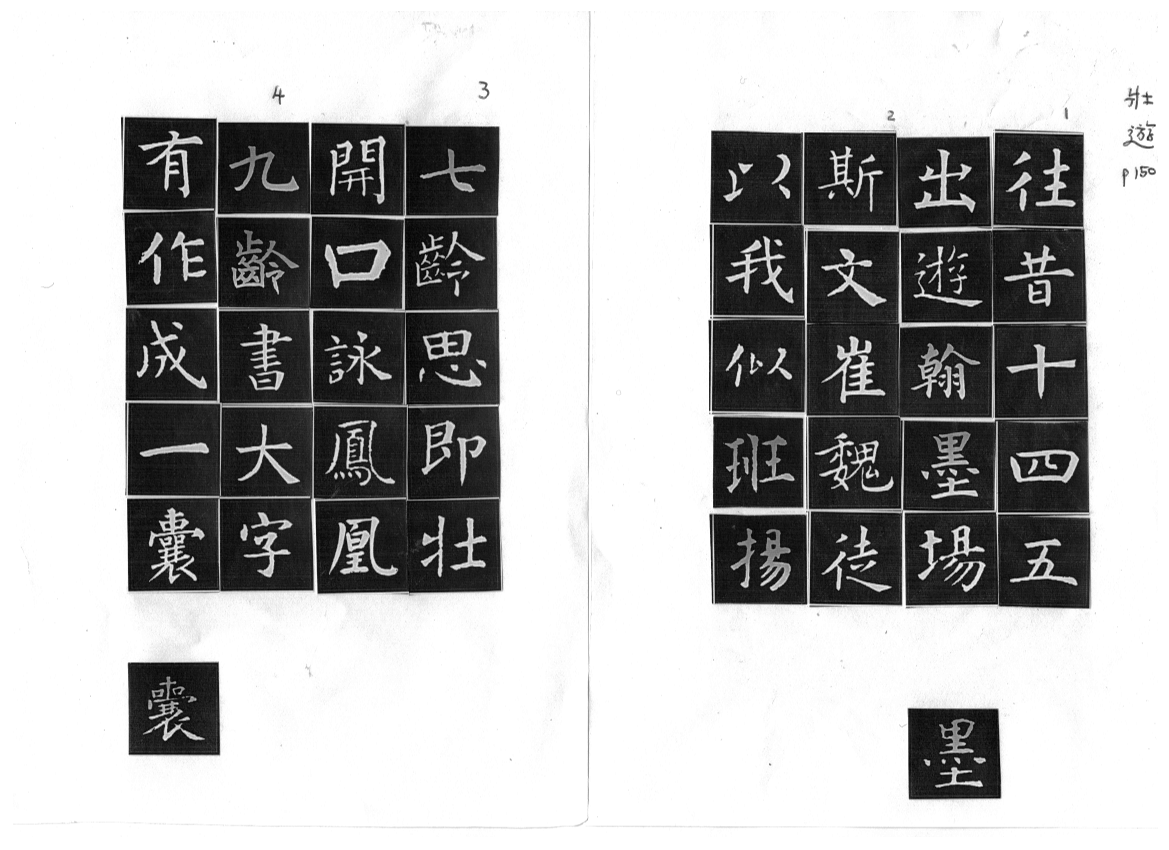 壮遊
p150
1
往昔十四五
出遊翰墨場
2
斯文崔魏徒
以我似班揚
墨
3
七齡思即壮
開口詠鳳凰
4
九齡書大字
有作成一囊
囊